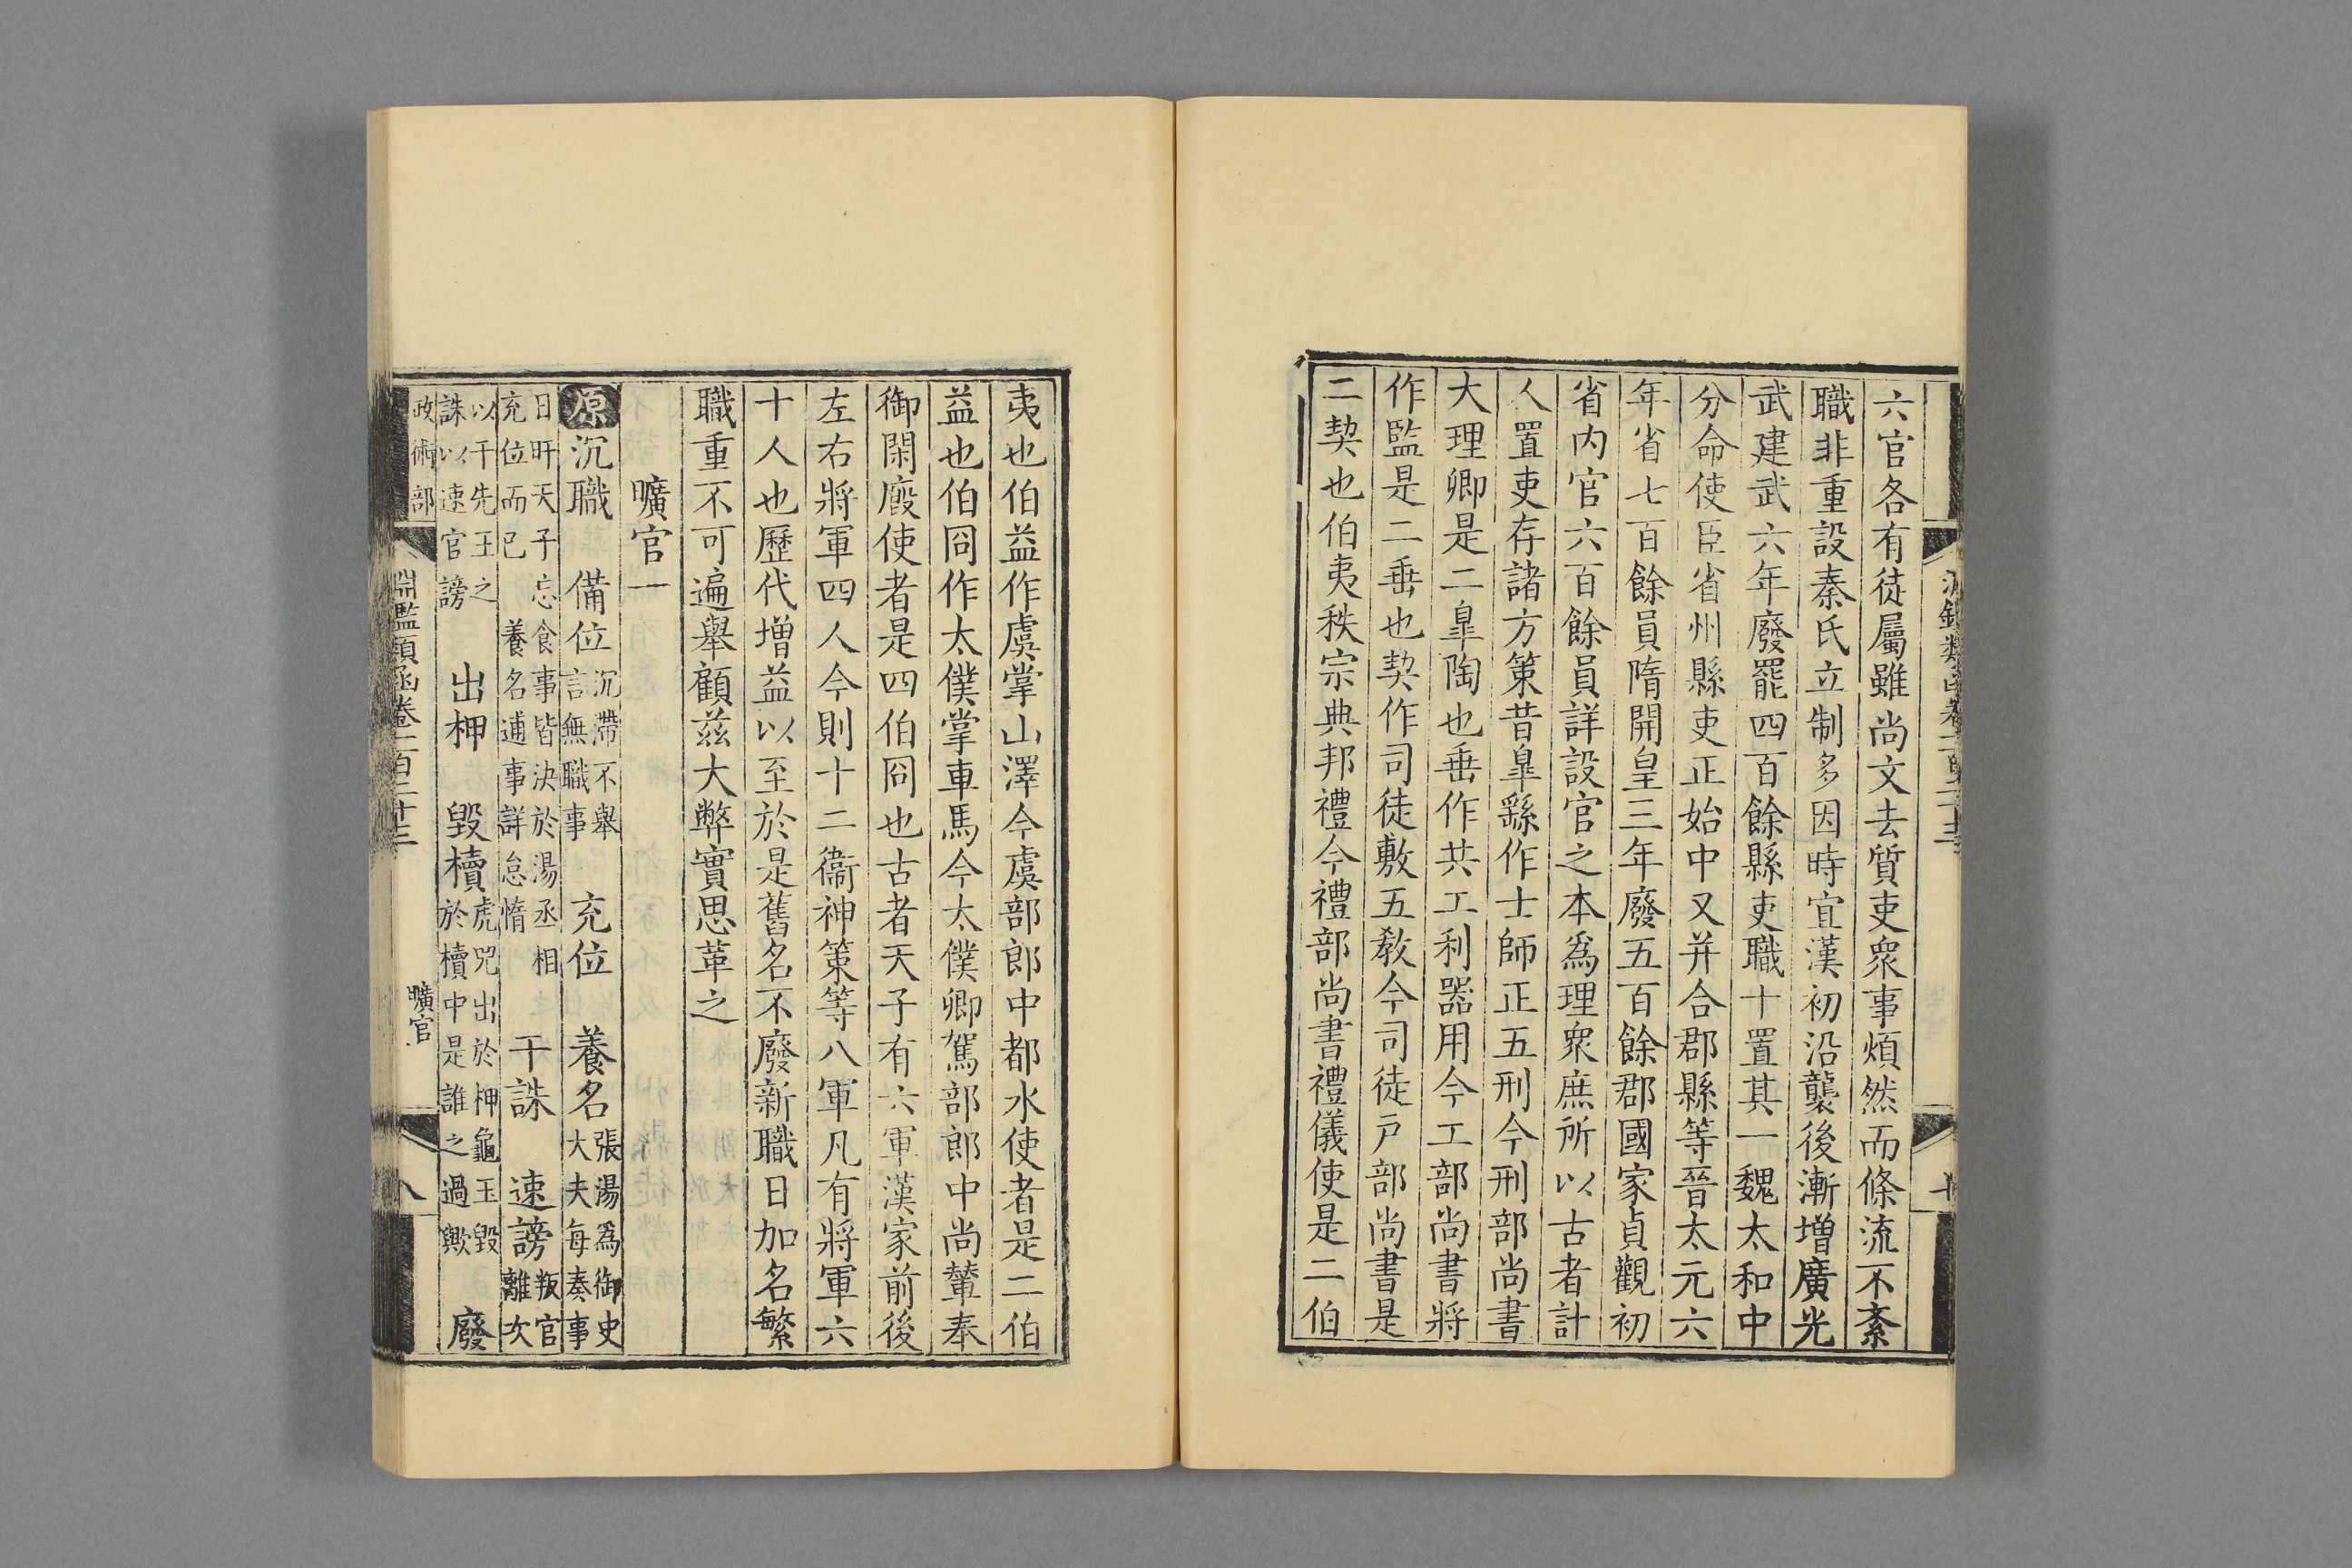 六官各有徒屬雖尚文去質吏衆事煩然而條流不紊
職非重設秦氏立制多因時宜漢初沿襲後漸增廣光
武建武六年廢罷四百餘縣吏職十置其一魏太和中
分命使臣省州縣吏正始中又并合郡縣等晉太元六
年省七百餘員隋開皇三年廢五百餘郡國家貞觀初
省内官六百餘員詳設官之本爲理衆庶所以古者計
人置吏存諸方策昔臯繇作士師正五刑今刑部尚書
大理卿是二臯陶也垂作共工利器用今工部尚書將
作監是二垂也契作司徒敷五教今司徒戸部尚書是
二契也伯夷秩宗典邦禮今禮部尚書禮儀使是二伯
夷也伯益作虞掌山澤今虞部郎中都水使者是二伯
益也伯冏作太僕掌車馬今太僕卿駕部郎中尚輦奉
御閑廄使者是四伯冏也古者天子有六軍漢家前後
左右將軍四人今則十二衞神策等八軍凡有將軍六
十人也歷代增益以至於是舊名不廢新職日加名繁
職重不可遍舉顧茲大弊實思革之
曠官一
原沉職　備位沉滯不舉言無職事　充位　養名張湯爲御史大夫每奏事
日旰天子忘食事皆決於湯丞相充位而已　養名逋事詳怠惰　干誅　速謗叛官離次
以干先王之誅以速官謗　出柙　毀櫝虎兕出於柙龜玉毀於櫝中是誰之過歟　廢
政術部　淵鑑類函卷一百二十三　曠官一　八